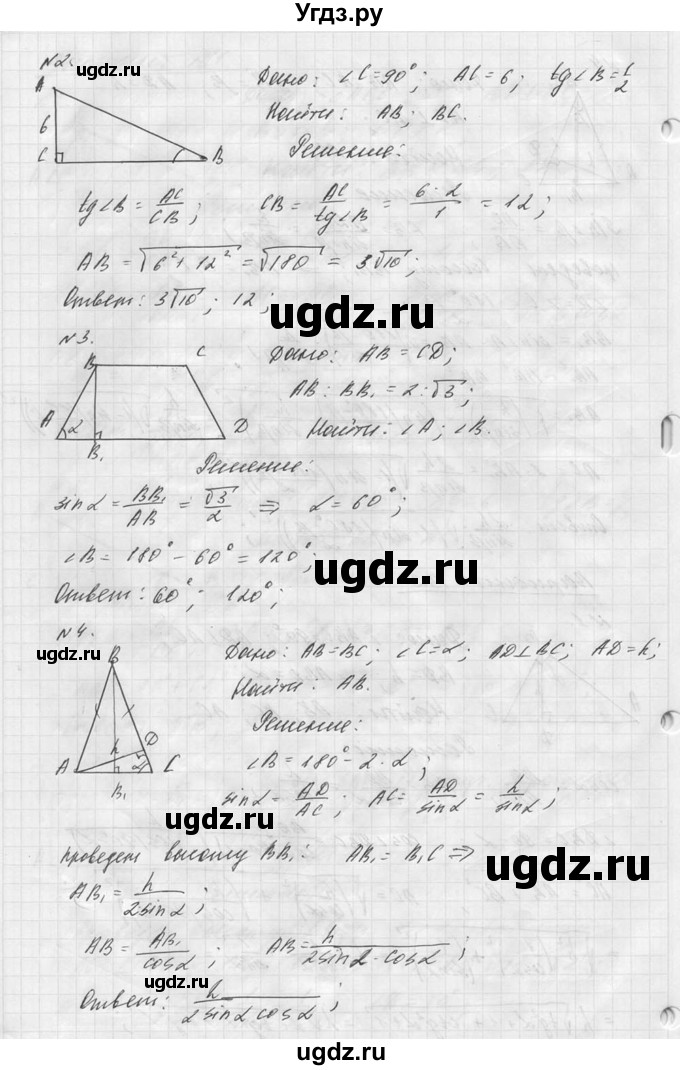 Угдз.ру
N2.
ugdz.ru
Дано: ∠C=90°; AC=6; tg∠B=1/2
Найти: AB; BC.
Решение:
A
6
C
B
tg∠B = AC/CB; CB = AC/tg∠B = 6·2/1 = 12;
AB = √(6²+12²) = √180 = 3√10;
Ответ: 3√10; 12;
ugdz.ru
N3.
Дано: AB = CD;
AB : BB₁ = 2:√3;
Найти: ∠A; ∠B.
B
C
A
α
D
B₁
Решение:
sinα = BB₁/AB = √3/2 ⇒ α = 60°;
∠B = 180° - 60° = 120°;
Ответ: 60°; 120°;
ugdz.ru
N4.
ugdz.ru
Дано: AB=BC; ∠C=α; AD⊥BC; AD=h;
Найти: AB.
Решение:
B
h
D
A
α
C
B₁
∠B = 180° - 2·α;
sinα = AD/AC; AC = AD/sinα = h/sinα;
ugdz.ru
проведем высоту BB₁: AB₁ = B₁C ⇒
ugdz.ru
AB₁ = h/2sinα;
AB = AB₁/cosα; AB = h/2sinα·cosα;
Ответ: h/2sinα cosα;
ugdz.ru
ugdz.ru